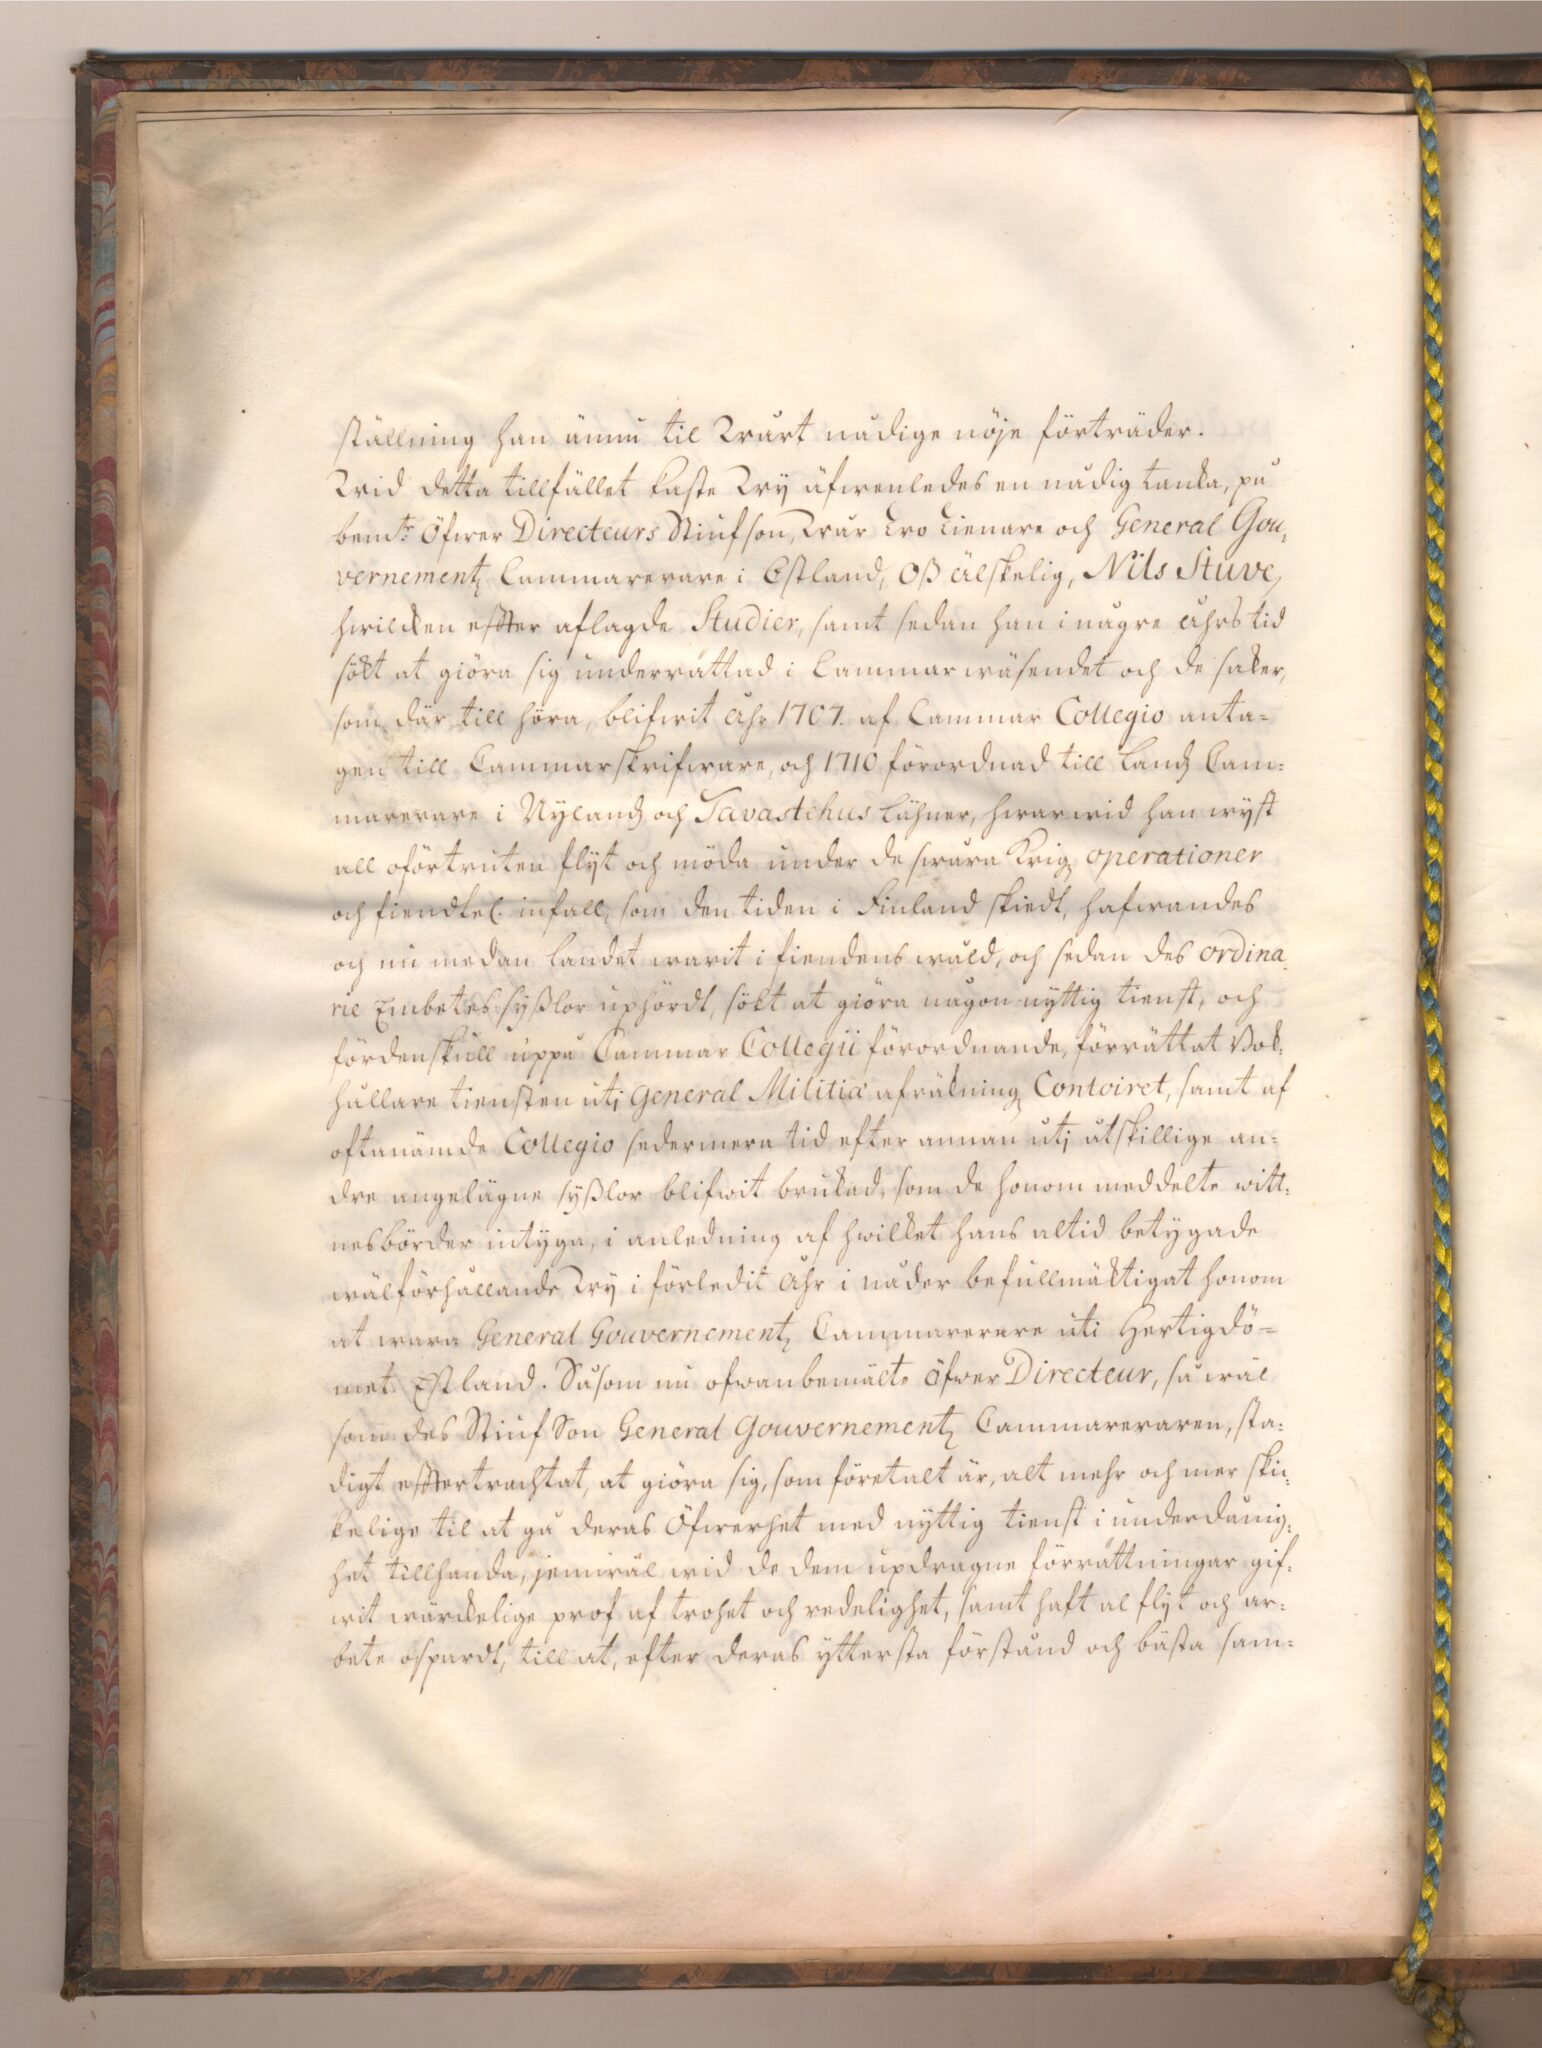 ställning han ännu til Wårt nådige nöje förträder.
Wid detta tillfället kaste Wy äfwenledes en nådig tanka, på
bem:te Öfwer Directeurs Stiufson, Wår Tro Tienare och General Gou,
vernementz Cammererare i Estland, Oß älskelig, Nils Stuve,
hwilcken effter aflagde Studier, samt sedan han i någre åhrs tid
sökt at giöra sig underrättad i Cammar wäsendet och de saker,
som där till höra, blifwit åhr 1707. af Cammar Collegio anta=
gen till Cammarskrifware, och 1710 förordnad till Landz Cam=
mererare i Nylandz och Tavastehus Lähner, hwarwid han wyst
all oförtruten flijt och möda under de swåra Krigz operationer
och fiendtel. infall, som den tiden i Finland skiedt, hafwandes
och nu medan landet warit i fiendens wåld, och sedan des ordina,
rie Embetes syßlor uphördt, sökt at giöra någon nyttig tienst, och
fördenskull uppå Cammar Collegii förordnande, förrättat Bok=
hållare tiensten utj General Militiæ afräknings Contoiret, samt af
oftanämde Collegio sedermera tid efter annan utj åtskillige an=
dre angelägne syßlor blifwit brukad, som de honom meddelte witt=
nesbörder intyga, i anledning af hwilket hans altid betygade
wälförhållande, Wy i förledit åhr i nåder befullmäktigat honom
at wara General Gouvernementz Cammererare uti Hertigdö=
met Estland. Såsom nu ofwanbemälte Öfwer Directeur, så wäl
som des Stiuf Son General Gouvernementz Cammereraren, stä=
digt efftertrachtat, at giöra sig, som företalt är, alt mehr och mer skic,
kelige til at gå deras Öfwerhet med nyttig tienst i underdånig,
het tillhanda, jemwäl wid de dem updragne förrättningar gif=
wit wärckelige prof af trohet och redelighet, samt haft al flijt och ar=
bete ospardt, till at, efter deras yttersta förstånd och bästa sam=